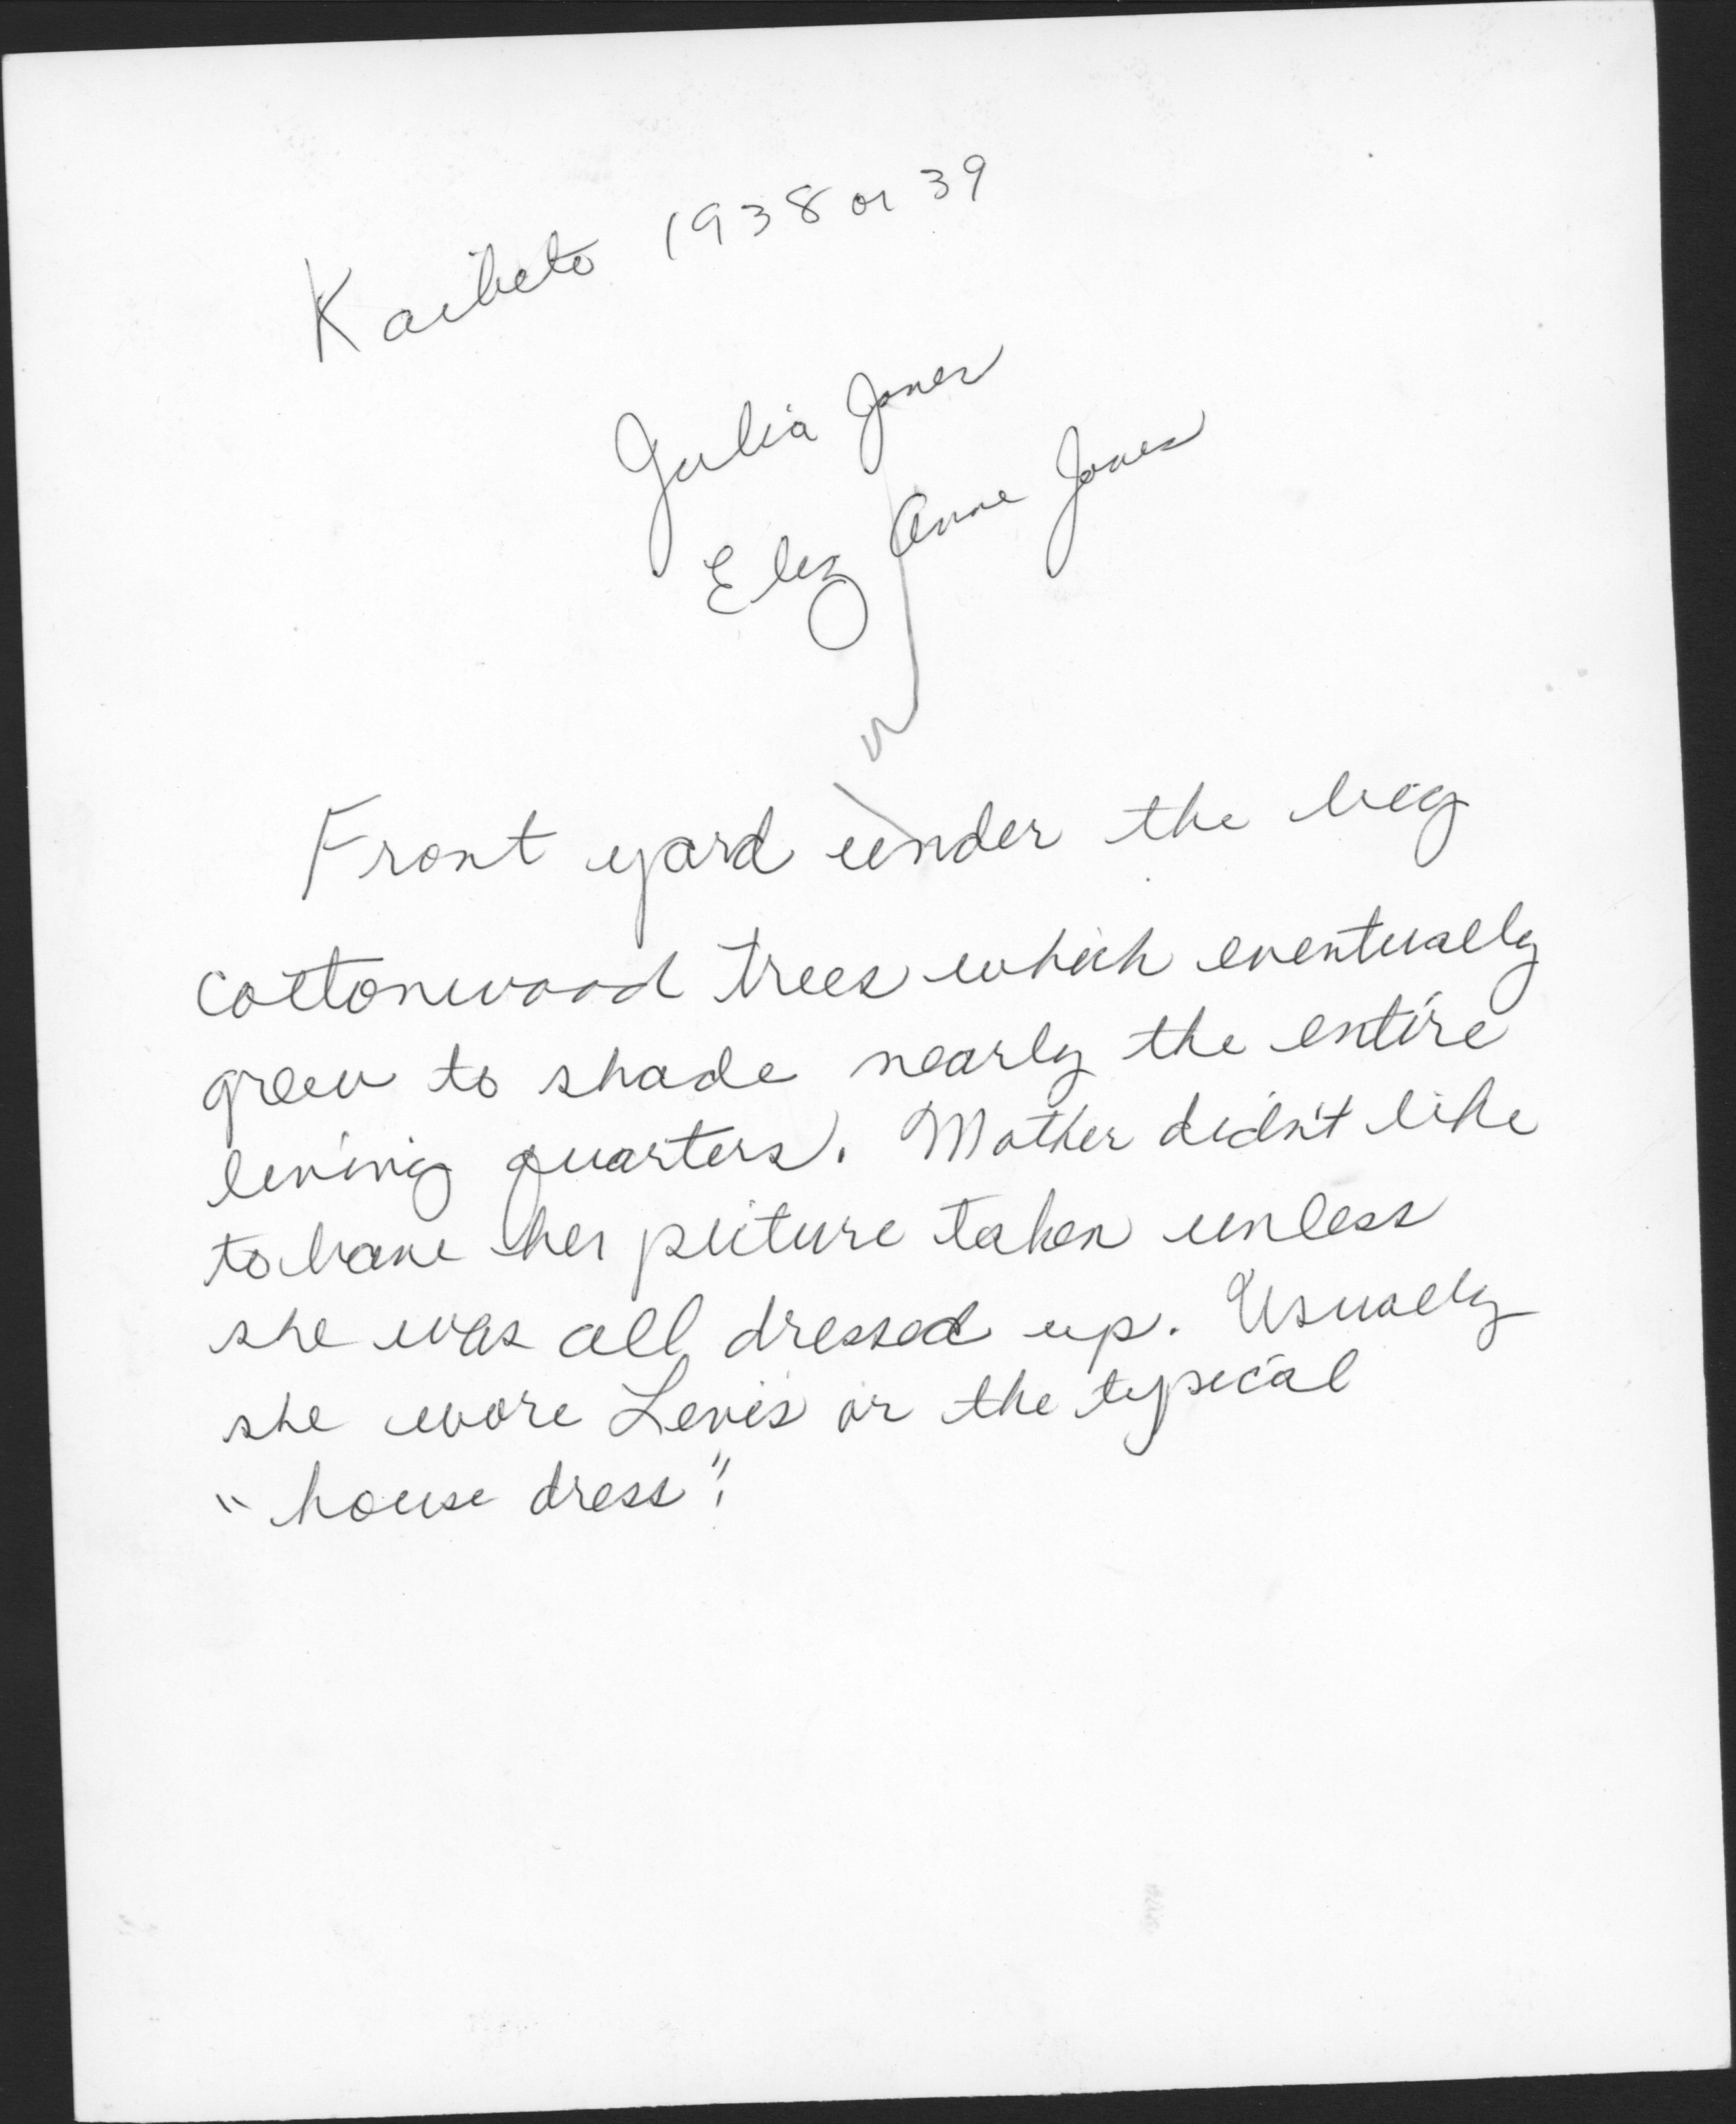 Kaibeto 1938 or 39
Julia Jones
Eliz Anne Jones
Front yard under the big
cottonwood trees which eventually
grew to shade nearly the entire
living quarters. Mother didn't like
to have her picture taken unless
she was all dressed up. Usually
she wore Levis or the typical
"house dress".